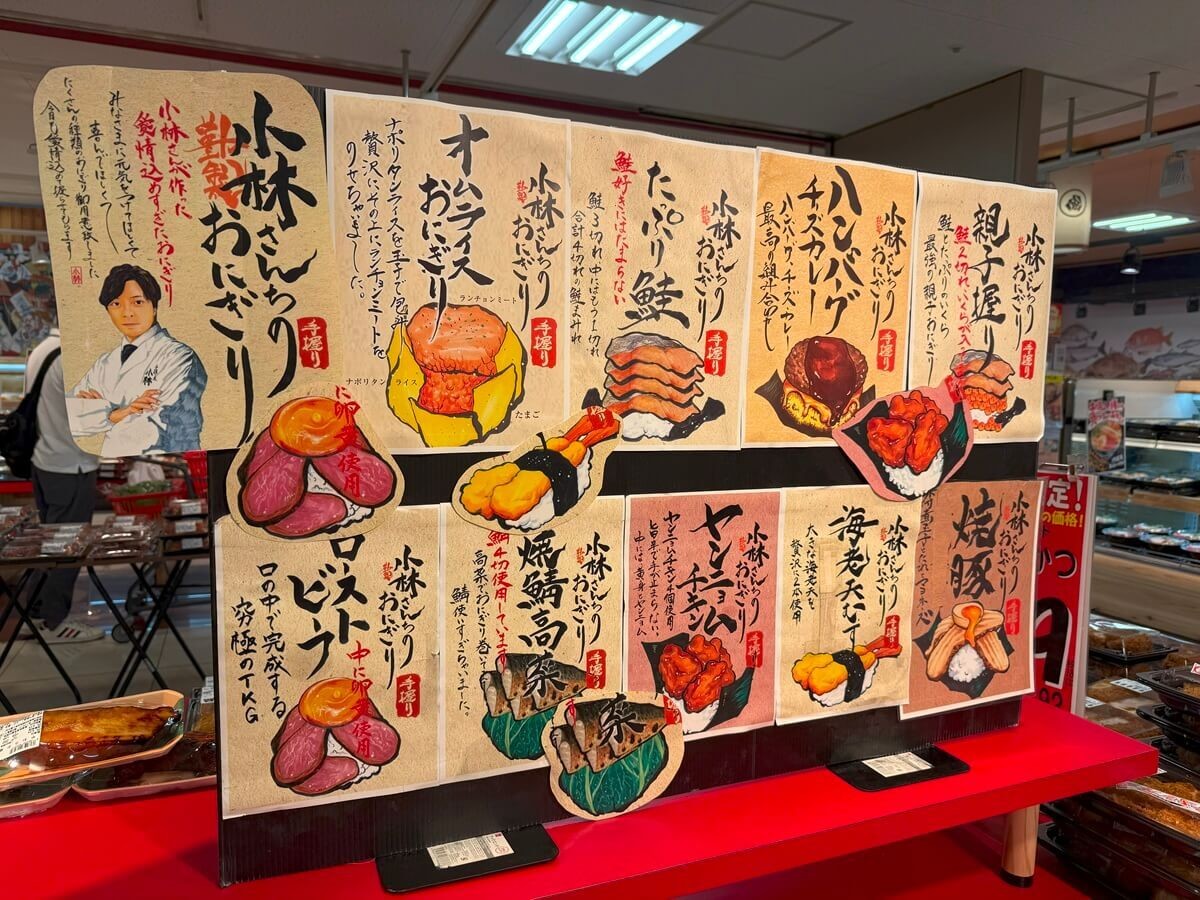 小林さんちの
おにぎり
手握り
小林さんが作った
愛情込めすぎたおにぎり
みなさまに元気をつけてほしくて
喜んでほしくて
たくさんの種類のおにぎり御用意致しました
今日も愛情込めて握ってもらいます
小林
小林さんちの
おにぎり
オムライス
おにぎり
ナポリタンライスを玉子で包み
贅沢にその上にランチョンミートを
のせちゃいました。
手握り
ランチョンミート
ナポリタンライス
たまご
小林さんちの
おにぎり
たっぷり鮭
鮭好きにはたまらない
鮭3切れ中にはもう1切れ
合計4切れの鮭まみれ
手握り
小林さんちの
おにぎり
ハンバーグ
チーズカレー
ハンバーグ・チーズ・カレー
最高の組み合わせ
手握り
小林さんちの
おにぎり
親子握り
鮭2切れ、いくらが入っ
鮭とたっぷりのいくら
最強の親子おにぎり
手握り
に卵黄使用
小林さんちの
おにぎり
ロースト
ビーフ
中に卵黄使用
口の中で完成する
究極のTKG
手握り
小林さんちの
おにぎり
焼鯖高菜
鯖4切使用しています
高菜でおにぎり巻いて
鯖使いすぎちゃいました。
手握り
菜
小林さんちの
おにぎり
ヤンニョム
チキン
ヤンニョムチキン4個使用
旨辛で手が止まらない。
中には黄身とヤンニョム
手握り
小林さんちの
おにぎり
海老天むす
大きな海老天を
贅沢に2本使用
手握り
小林さんちの
おにぎり
焼豚
手握り
定!
の価格!
かつ